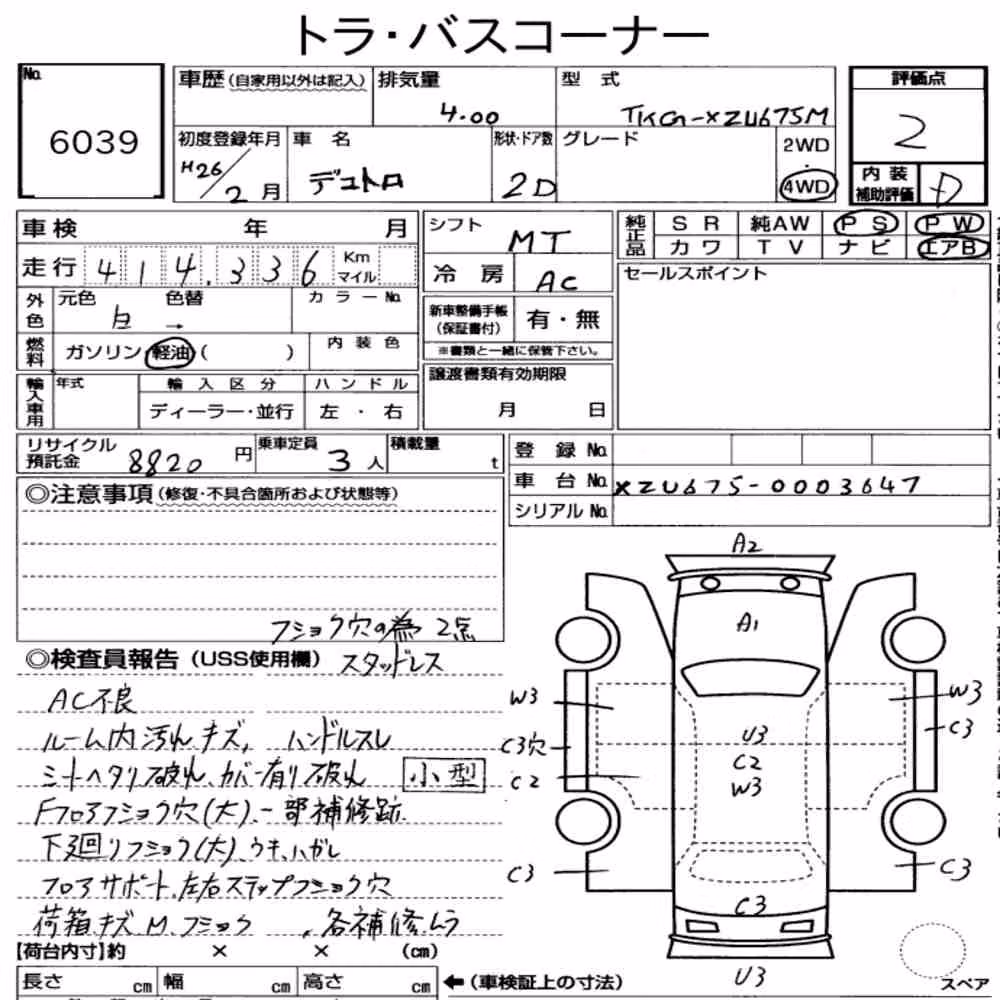 トラ・バスコーナー
No.
6039
車歴 (自家用以外は記入)
排気量
4.00
型式
TKG-XZU675M
評価点
2
初度登録年月
H26/2月
車名
デュトロ
形状・ドア数
2D
グレード
2WD
・
4WD
内装
補助評価
D
車検 年 月
シフト
MT
純正品
SR 純AW PS PW
カワ TV ナビ エアB
走行 414,336 Km
マイル
冷房
AC
セールスポイント
外色
元色 色替
白 →
カラーNo.
新車整備手帳
(保証書付)
有・無
※書類と一緒に保管下さい。
燃料
ガソリン 軽油 ( )
内装色
輸入車用
年式
輸入区分
ハンドル
ディーラー・並行
左・右
譲渡書類有効期限
月 日
リサイクル
預託金
8820円
乗車定員
3人
積載量
t
登録No.
車台No.
XZU675-0003647
シリアルNo.
◎注意事項 (修復・不具合箇所および状態等)
フショク穴の為 2点
◎検査員報告 (USS使用欄) スタッドレス
AC不良
ルーム内汚れキズ, ハンドルスレ
シートヘタリ破れ、カバー有り破れ
小型
Fフロアフショク穴(大)、一部補修跡
下廻リフショク(大)、ウキ、ハガレ
フロアサポート、左右ステップフショク穴
荷箱キズ、M、フショク 、各補修ムラ
【荷台内寸】約 × × (cm)
長さ cm 幅 cm 高さ cm
←(車検証上の寸法)
A2
A1
W3
W3
C3穴
U3
C3
C2
C2
W3
C3
C3
C3
U3
スペア